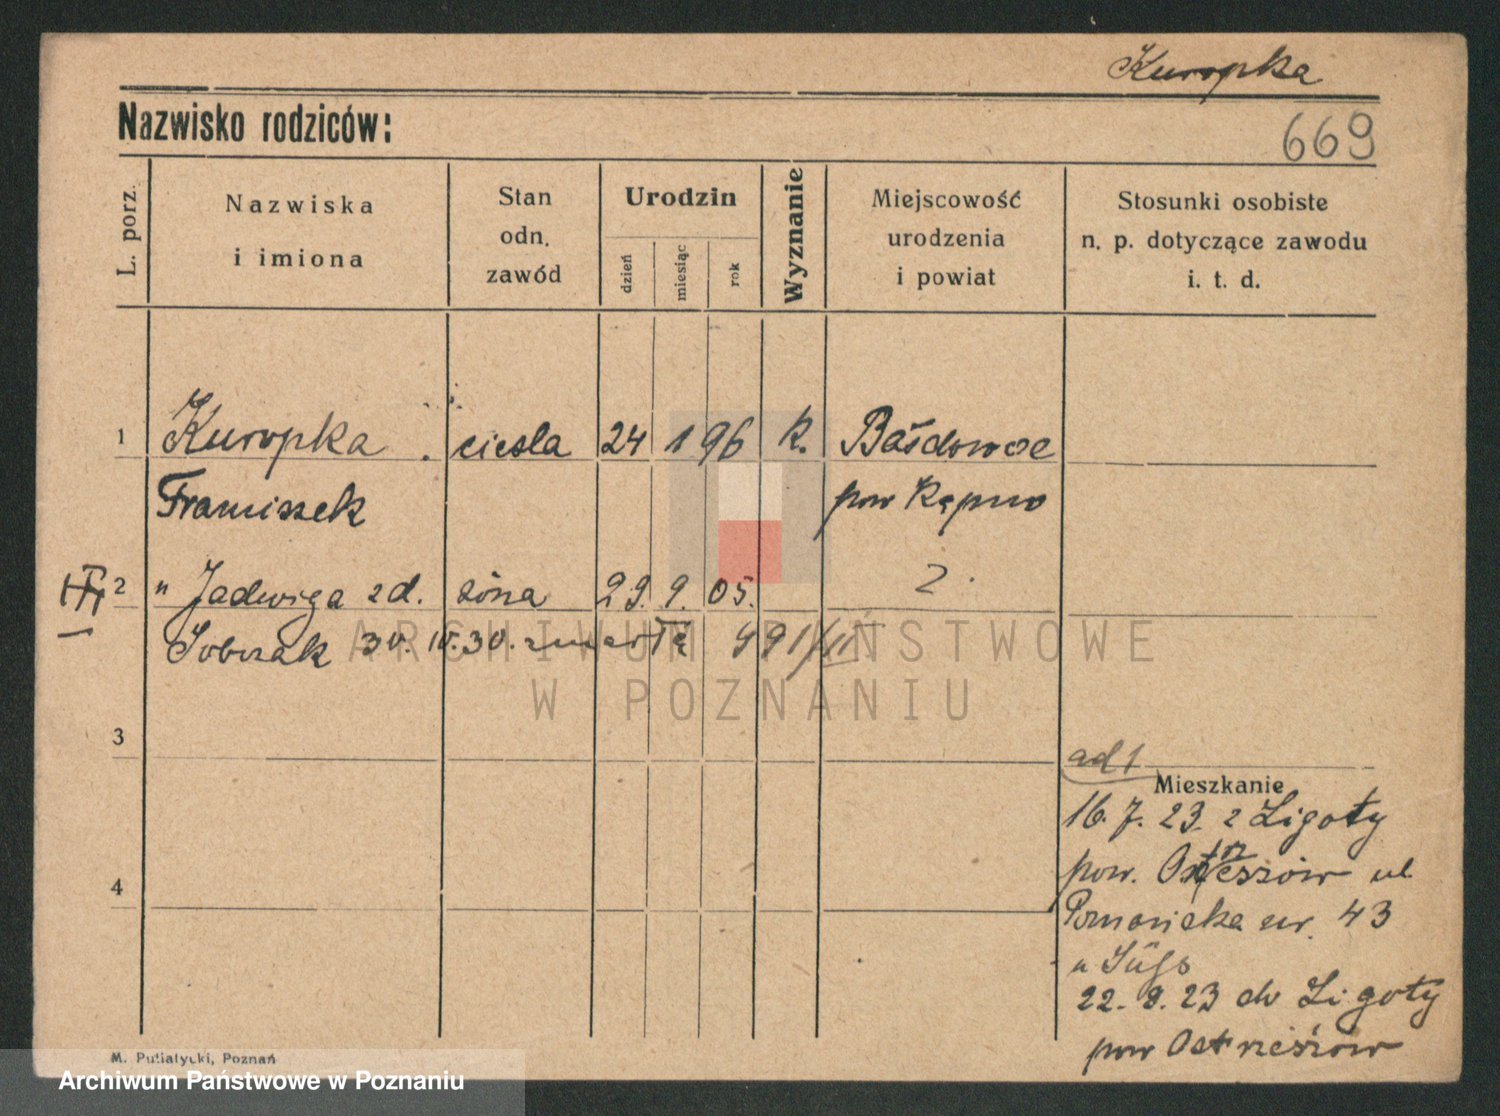 Kuropka
Nazwisko rodziców:
669
L. porz.
Nazwiska
i imiona
Stan
odn.
zawód
Urodzin
dzień
miesiąc
rok
Wyznanie
Miejscowość
urodzenia
i powiat
Stosunki osobiste
n. p. dotyczące zawodu
i. t. d.
1 Kuropka cieśla 24 1 96 k.
Franciszek pow Kępno
2 " Jadwiga zd. żona 29. 9. 05. 2.
Sobczak 30. IV. 30. zmarła 491/II
ARCHIWUM PAŃSTWOWE
W POZNANIU
3
ad 1
Mieszkanie
16. 7. 23. z Ligoty
pow. Ostrzeszów ul.
Poznańska nr. 43
u Süss
22. 8. 23 do Ligoty
pow Ostrzeszów
4
M. Putiatycki, Poznań
Archiwum Państwowe w Poznaniu